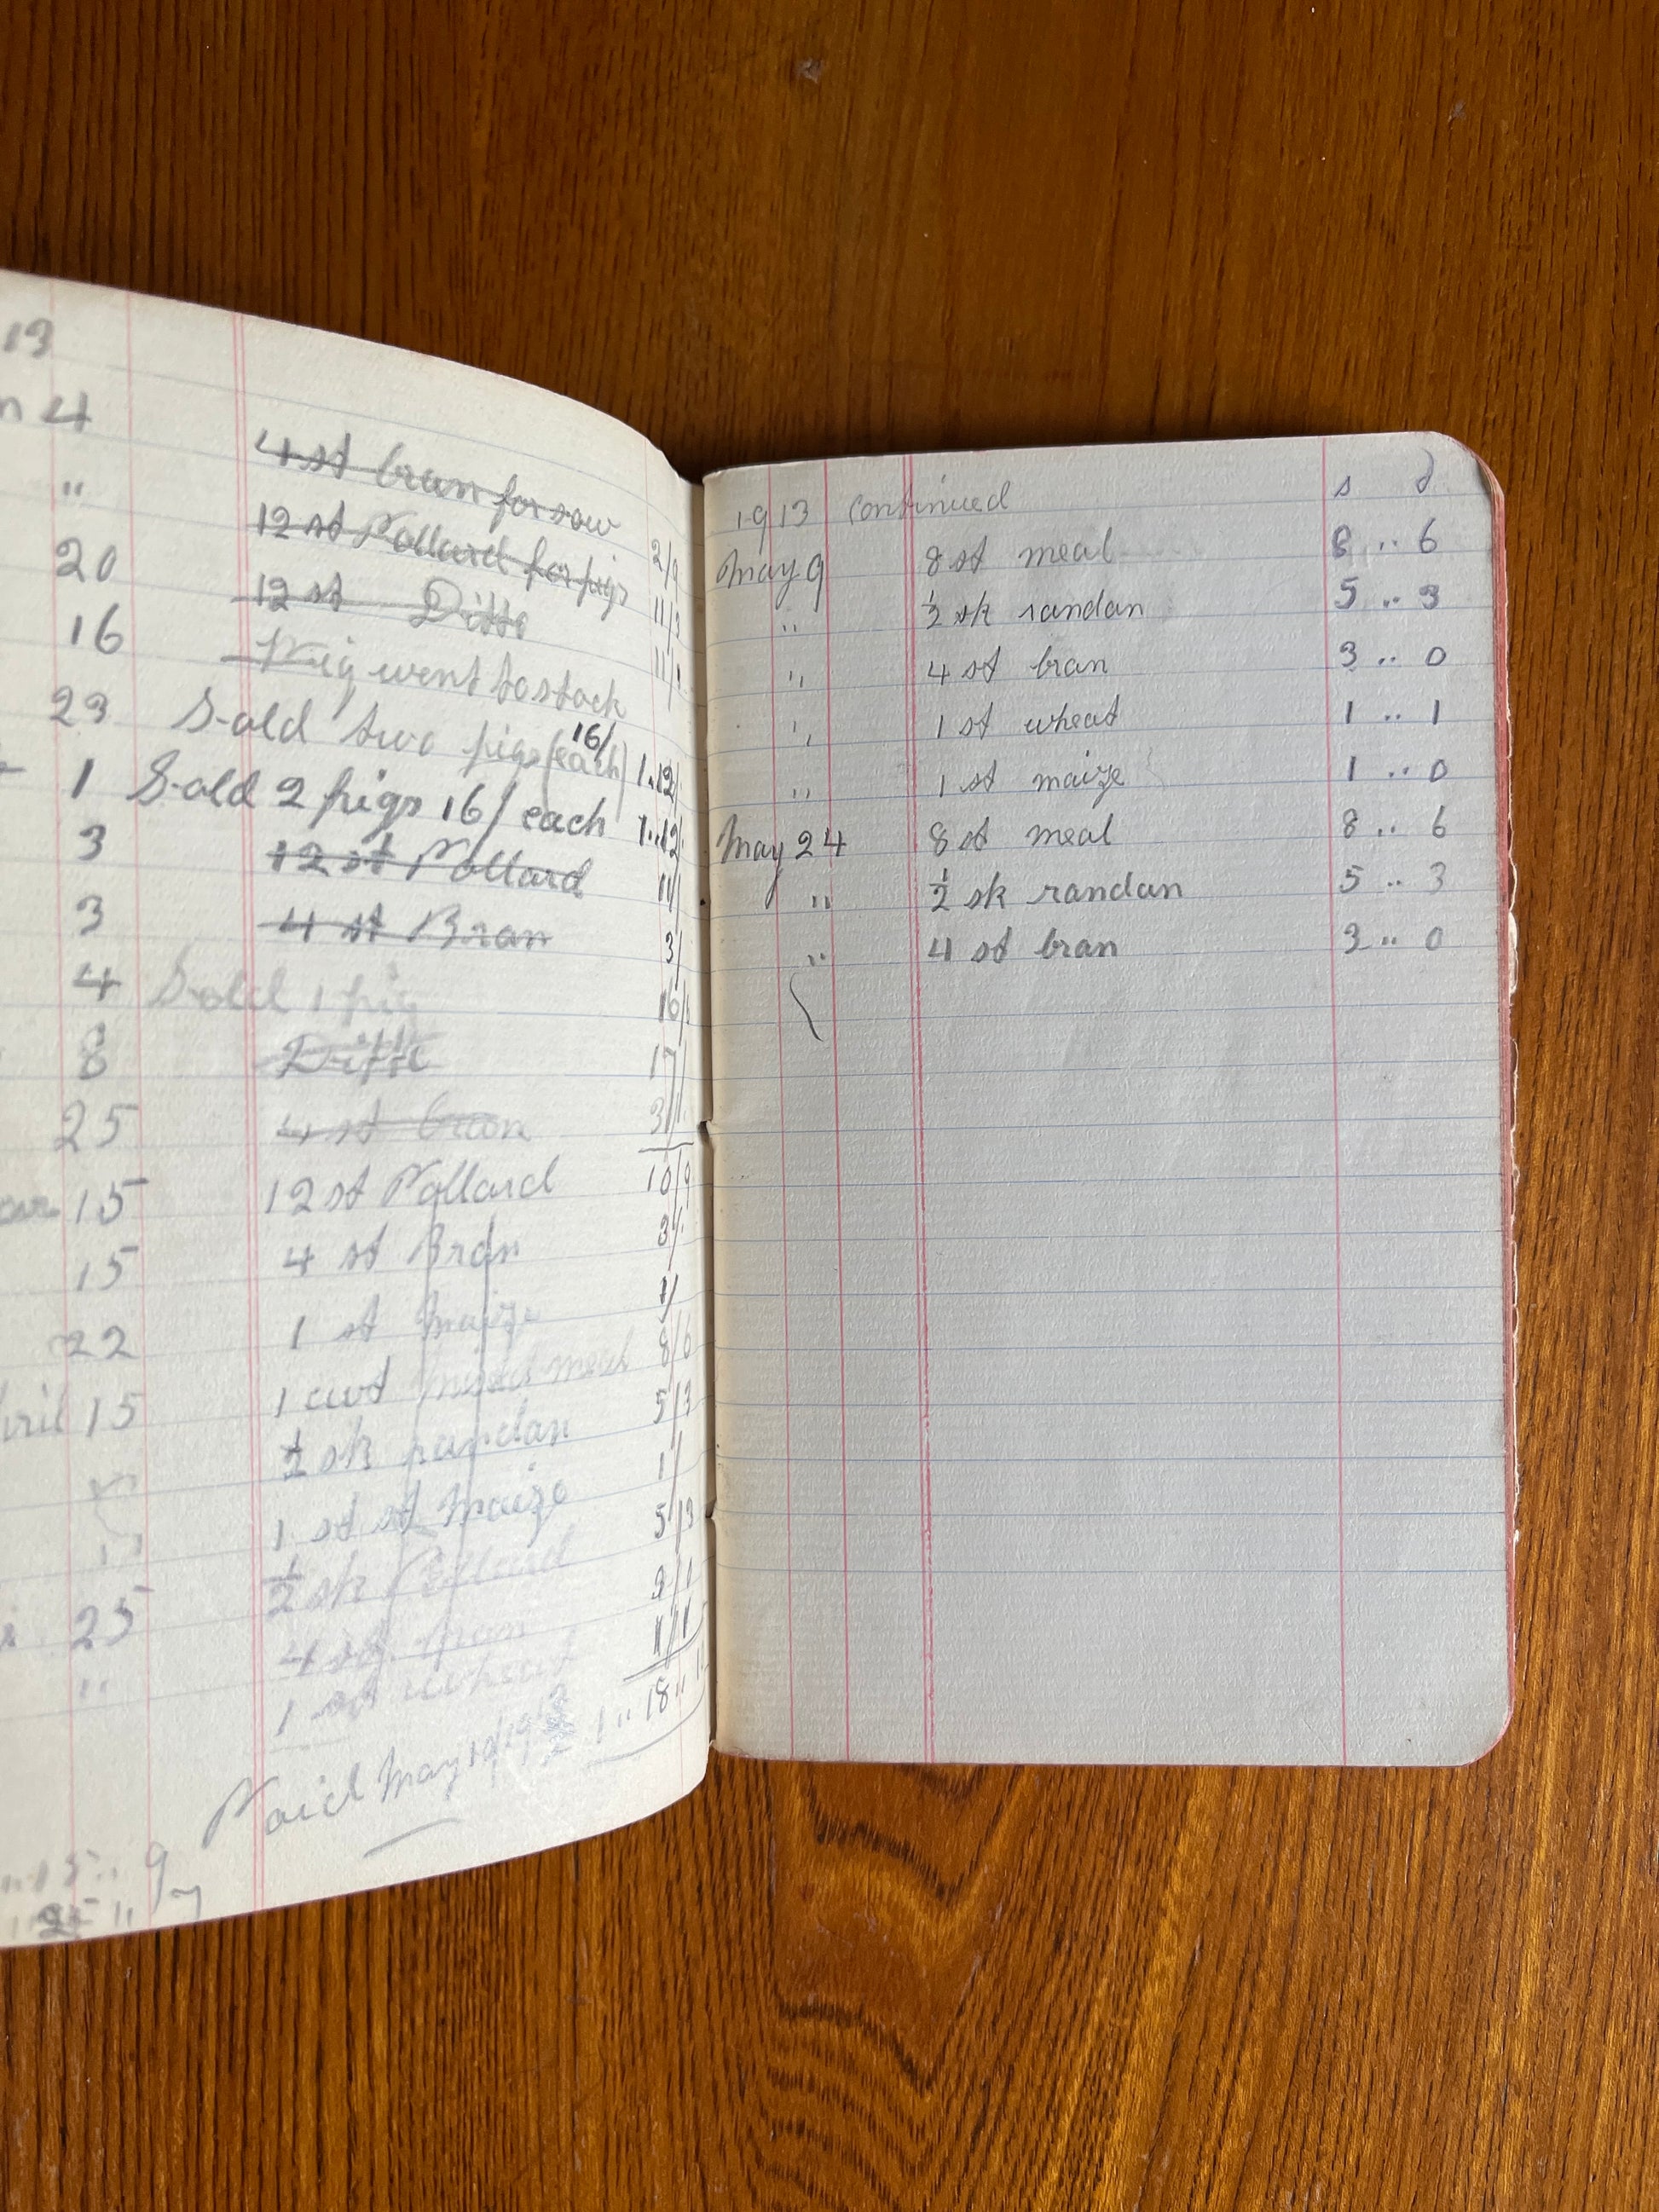 13
n 4 4 st bran for sow 2/9
" 12 st Pollard for pigs 11/3
20 12 st Ditto 11/
16 Pig went to stock
23 Sold two pigs (each) 16/ 1.12/
1 Sold 2 pigs 16/ each 1..12/
3 12 st Pollard 11/
3 4 st Bran 3/
4 Sold 1 pig 16/
8 Ditto 17/
25 4 st bran 3/
15 12 st Pollard 10/9
15 4 st Bran 3/
22 1 st Maize 1/
ril 15 1 cwt mixed meal 8/6
½ sk randan 5/3
" 1 st st Maize 1/
25 ½ sk Pollard 5/3
" 4 st bran
1 st wheat 1/1
1 " 18 "
Paid May 10 1913
15 .. 9
1913 continued s d
May 9 8 st meal 8 .. 6
" ½ sk randan 5 .. 3
" 4 st bran 3 .. 0
" 1 st wheat 1 .. 1
" 1 st maize 1 .. 0
May 24 8 st meal 8 .. 6
" ½ sk randan 5 .. 3
" 4 st bran 3 .. 0